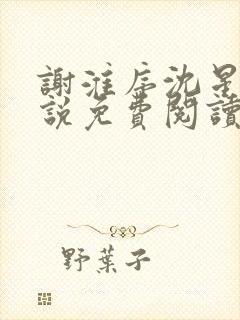 謝淮序沈星
說免費閱讀
野葉子